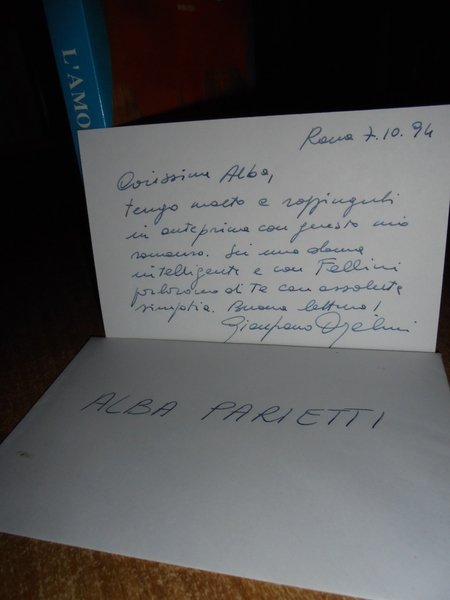 L'AMO
Roma 7.10.94
Carissima Alba,
tengo molto a raggiungerti
in anteprima con questo mio
romanzo. Sei una donna
intelligente e con Fellini
parlavamo di Te con assoluta
simpatia. Buona lettura!
ALBA PARIETTI